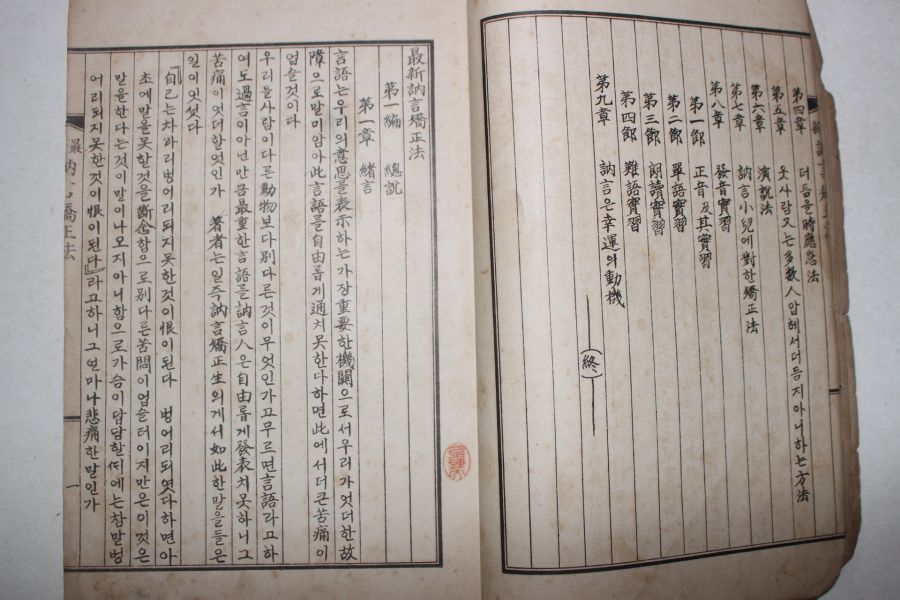 第四章 더듬을時應急法
第五章 웃사람又는多數人압헤서더듬지아니하는方法
第六章 演說法
第七章 訥言小兒에對한矯正法
第八章 發音實習
第一節 正音及其實習
第二節 單語實習
第三節 朗讀實習
第四節 難語實習
第九章 訥言은幸運의動機
(終)
最新訥言矯正法
第一編 總說
第一章 緖言
言語는우리의意思를表示하는가장重要한機關으로서우리가엇더한故
障으로말미암아此言語를自由롭게通치못한다하면此에서더큰苦痛이
업슬것이다
우리들사람이다른動物보다別다른것이무엇인가고무르면言語라고하
여도過言이아닌만콤最重한言語를訥言人은自由롭게發表치못하니그
苦痛이엇더할엇인가 著者는일즉訥言矯正生의게서如此한말을들은
일이잇섯다
『自己는차라리벙어리되지못한것이恨이된다 벙어리되엿다하면아
초에말을못할것을斷念함으로別다른苦悶이업슬터이지만은이것은
말을한다는것이말이나오지아니함으로가슴이답답할때에는참말벙
어리되지못한것이恨이된다』라고하니그언마나悲痛한말인가
最新訥言矯正法
一